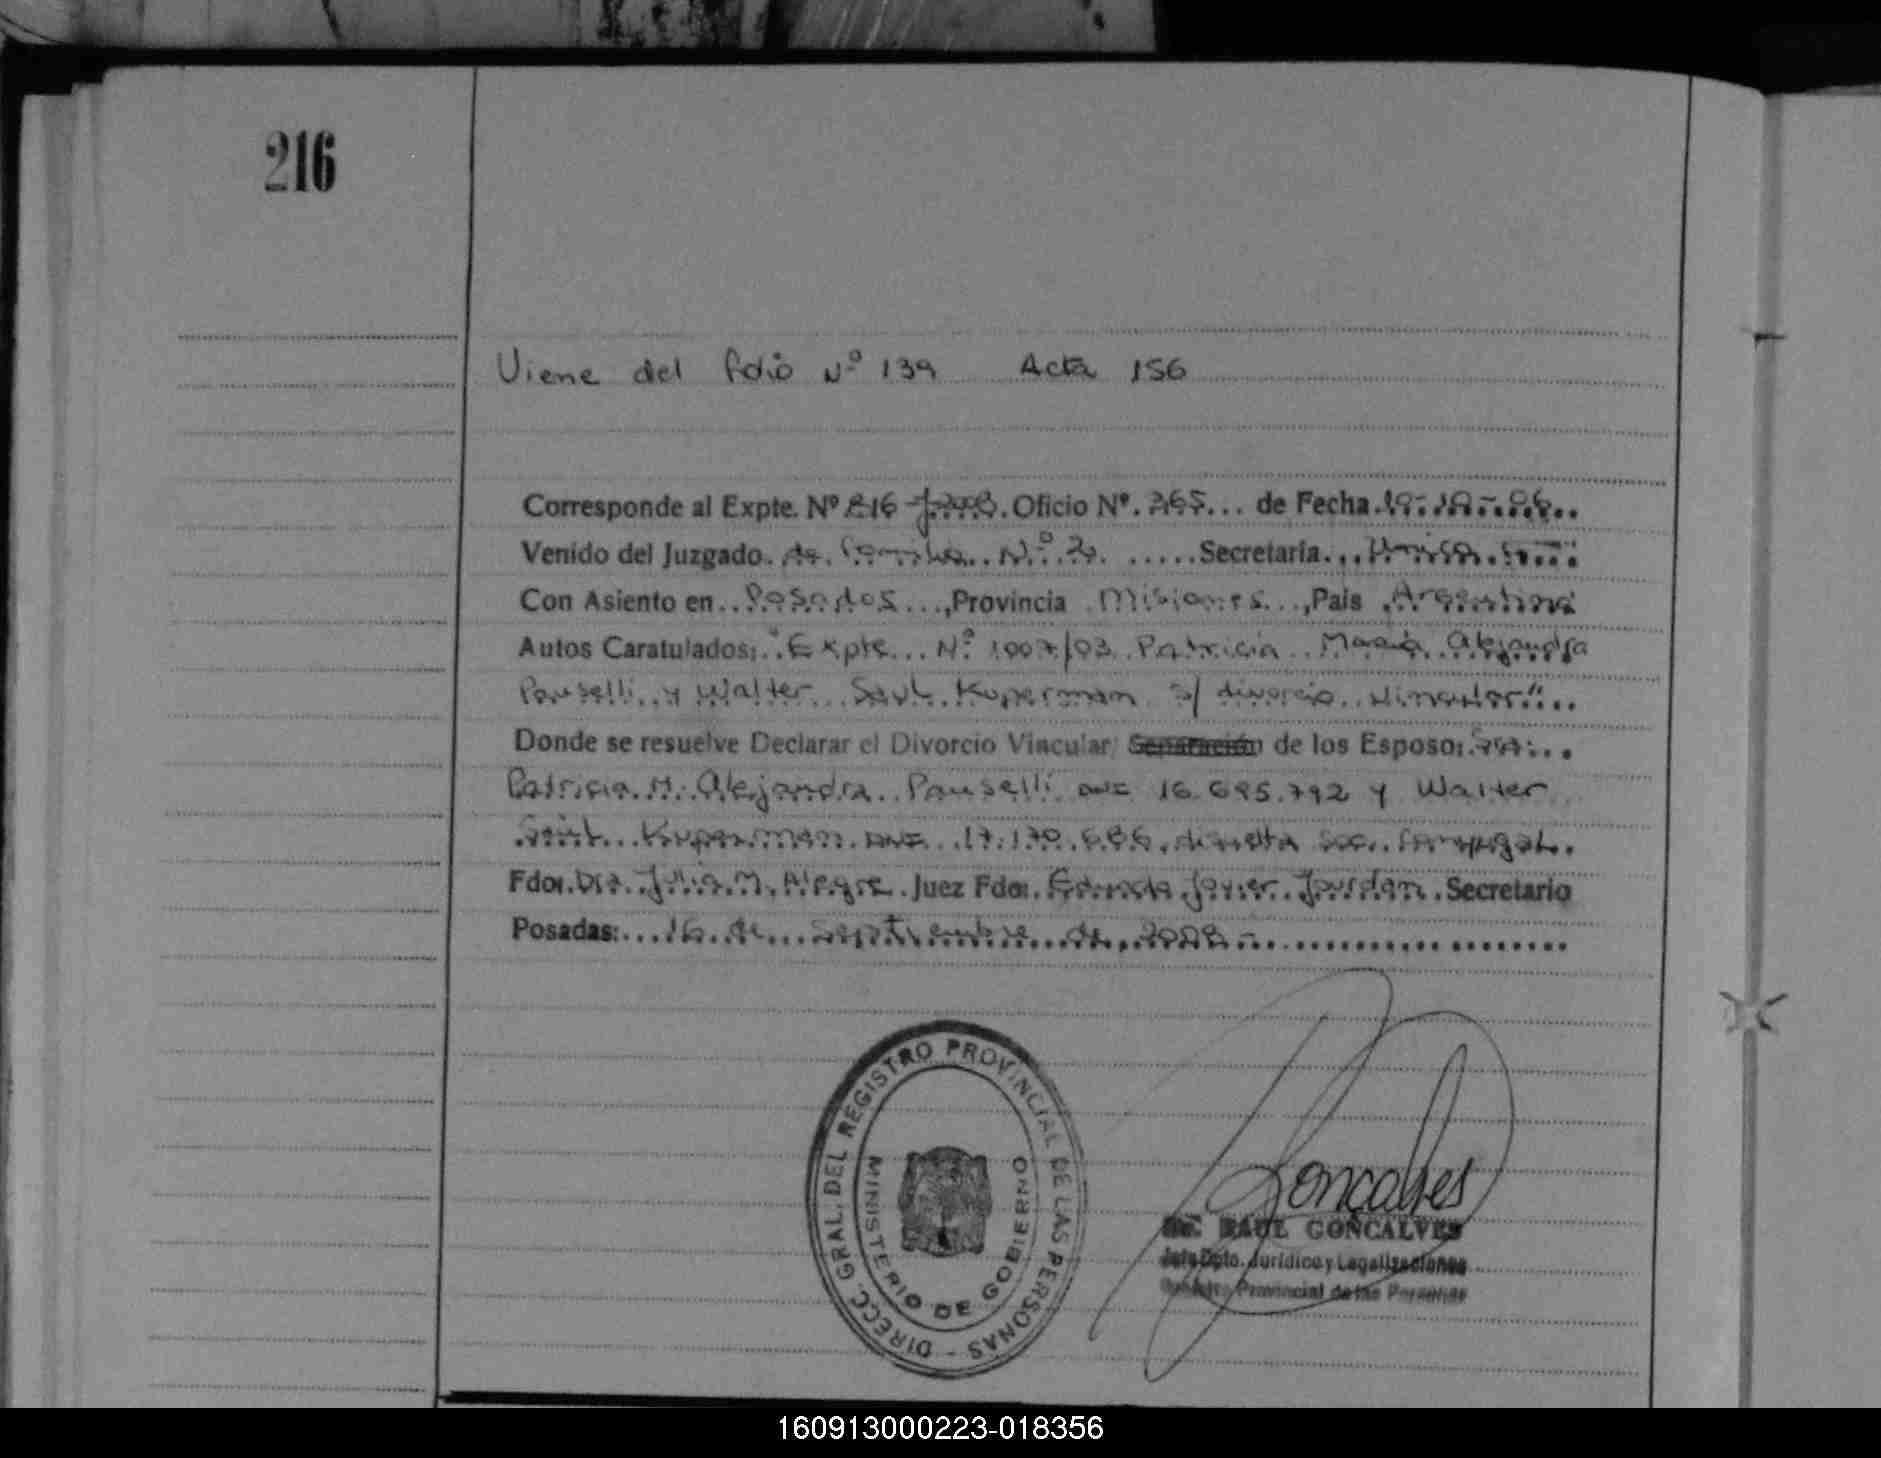 216
Viene del folio Nº 139 Acta 156
Corresponde al Expte. Nº 816 Oficio Nº. 365... de Fecha
Venido del Juzgado. de Familia.. Nº. 2. .....Secretaría... Unica
Con Asiento en..Posadas...,Provincia Misiones...,Pais .Argentina
Autos Caratulados;."Expte... Nº 1007/03. Patricia.. María Alejandra
Pauselli. y Walter.. Saul. Kuperman S/ divorcio.. vincular"...
Donde se resuelve Declarar el Divorcio Vincular; Separación de los Esposos:
Patricia. M. Alejandra.. Pauselli DNI 16.695.792 y Walter
Saul.. Kuperman DNI.. 17.170.686. disuelta soc. conyugal.
Fdo:.Dra. Julia. M. Alegre. Juez Fdo:. Eduardo Javier. Jourdan. Secretario
Posadas:...16 de... Septiembre de 2008
DIRECC. GRAL. DEL REGISTRO PROVINCIAL DE LAS PERSONAS -
MINISTERIO DE GOBIERNO
Goncalves
Dr. RAUL GONCALVES
Jefe Dpto. Jurídico y Legalizaciones
Registro Provincial de las Personas
160913000223-018356